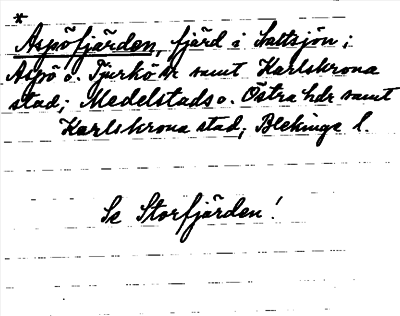 *
Aspöfjärden, fjärd i Saltsjön;
Aspö o. Tjurkö snr samt Karlskrona
stad; Medelstads o. Östra hdr samt
Karlskrona stad; Blekinge l.
Se Storfjärden!